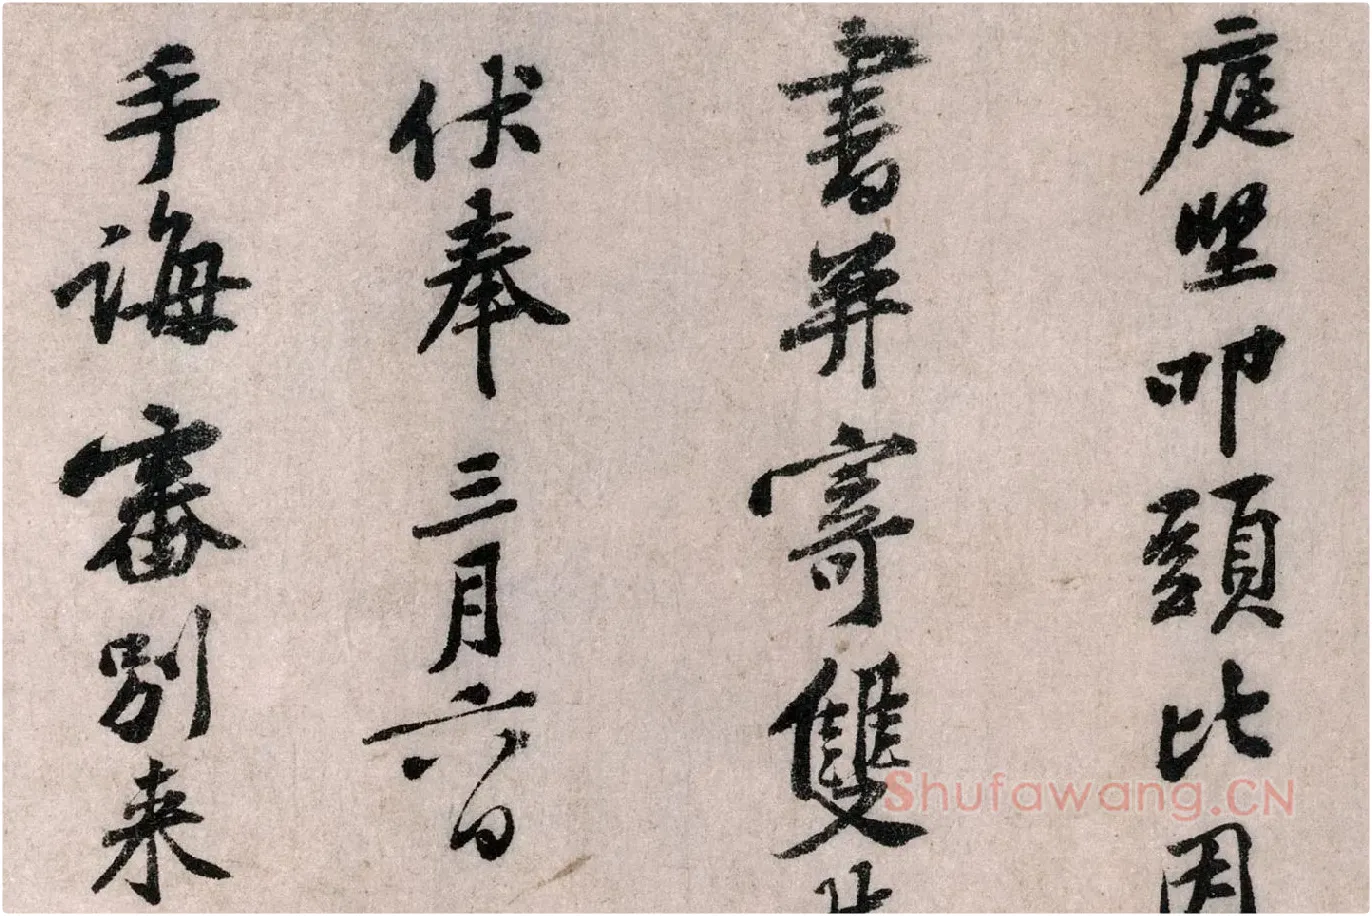 庭堅叩頭比因
書并寄雙
伏奉三月六日
手誨審別来
Shufawang.CN